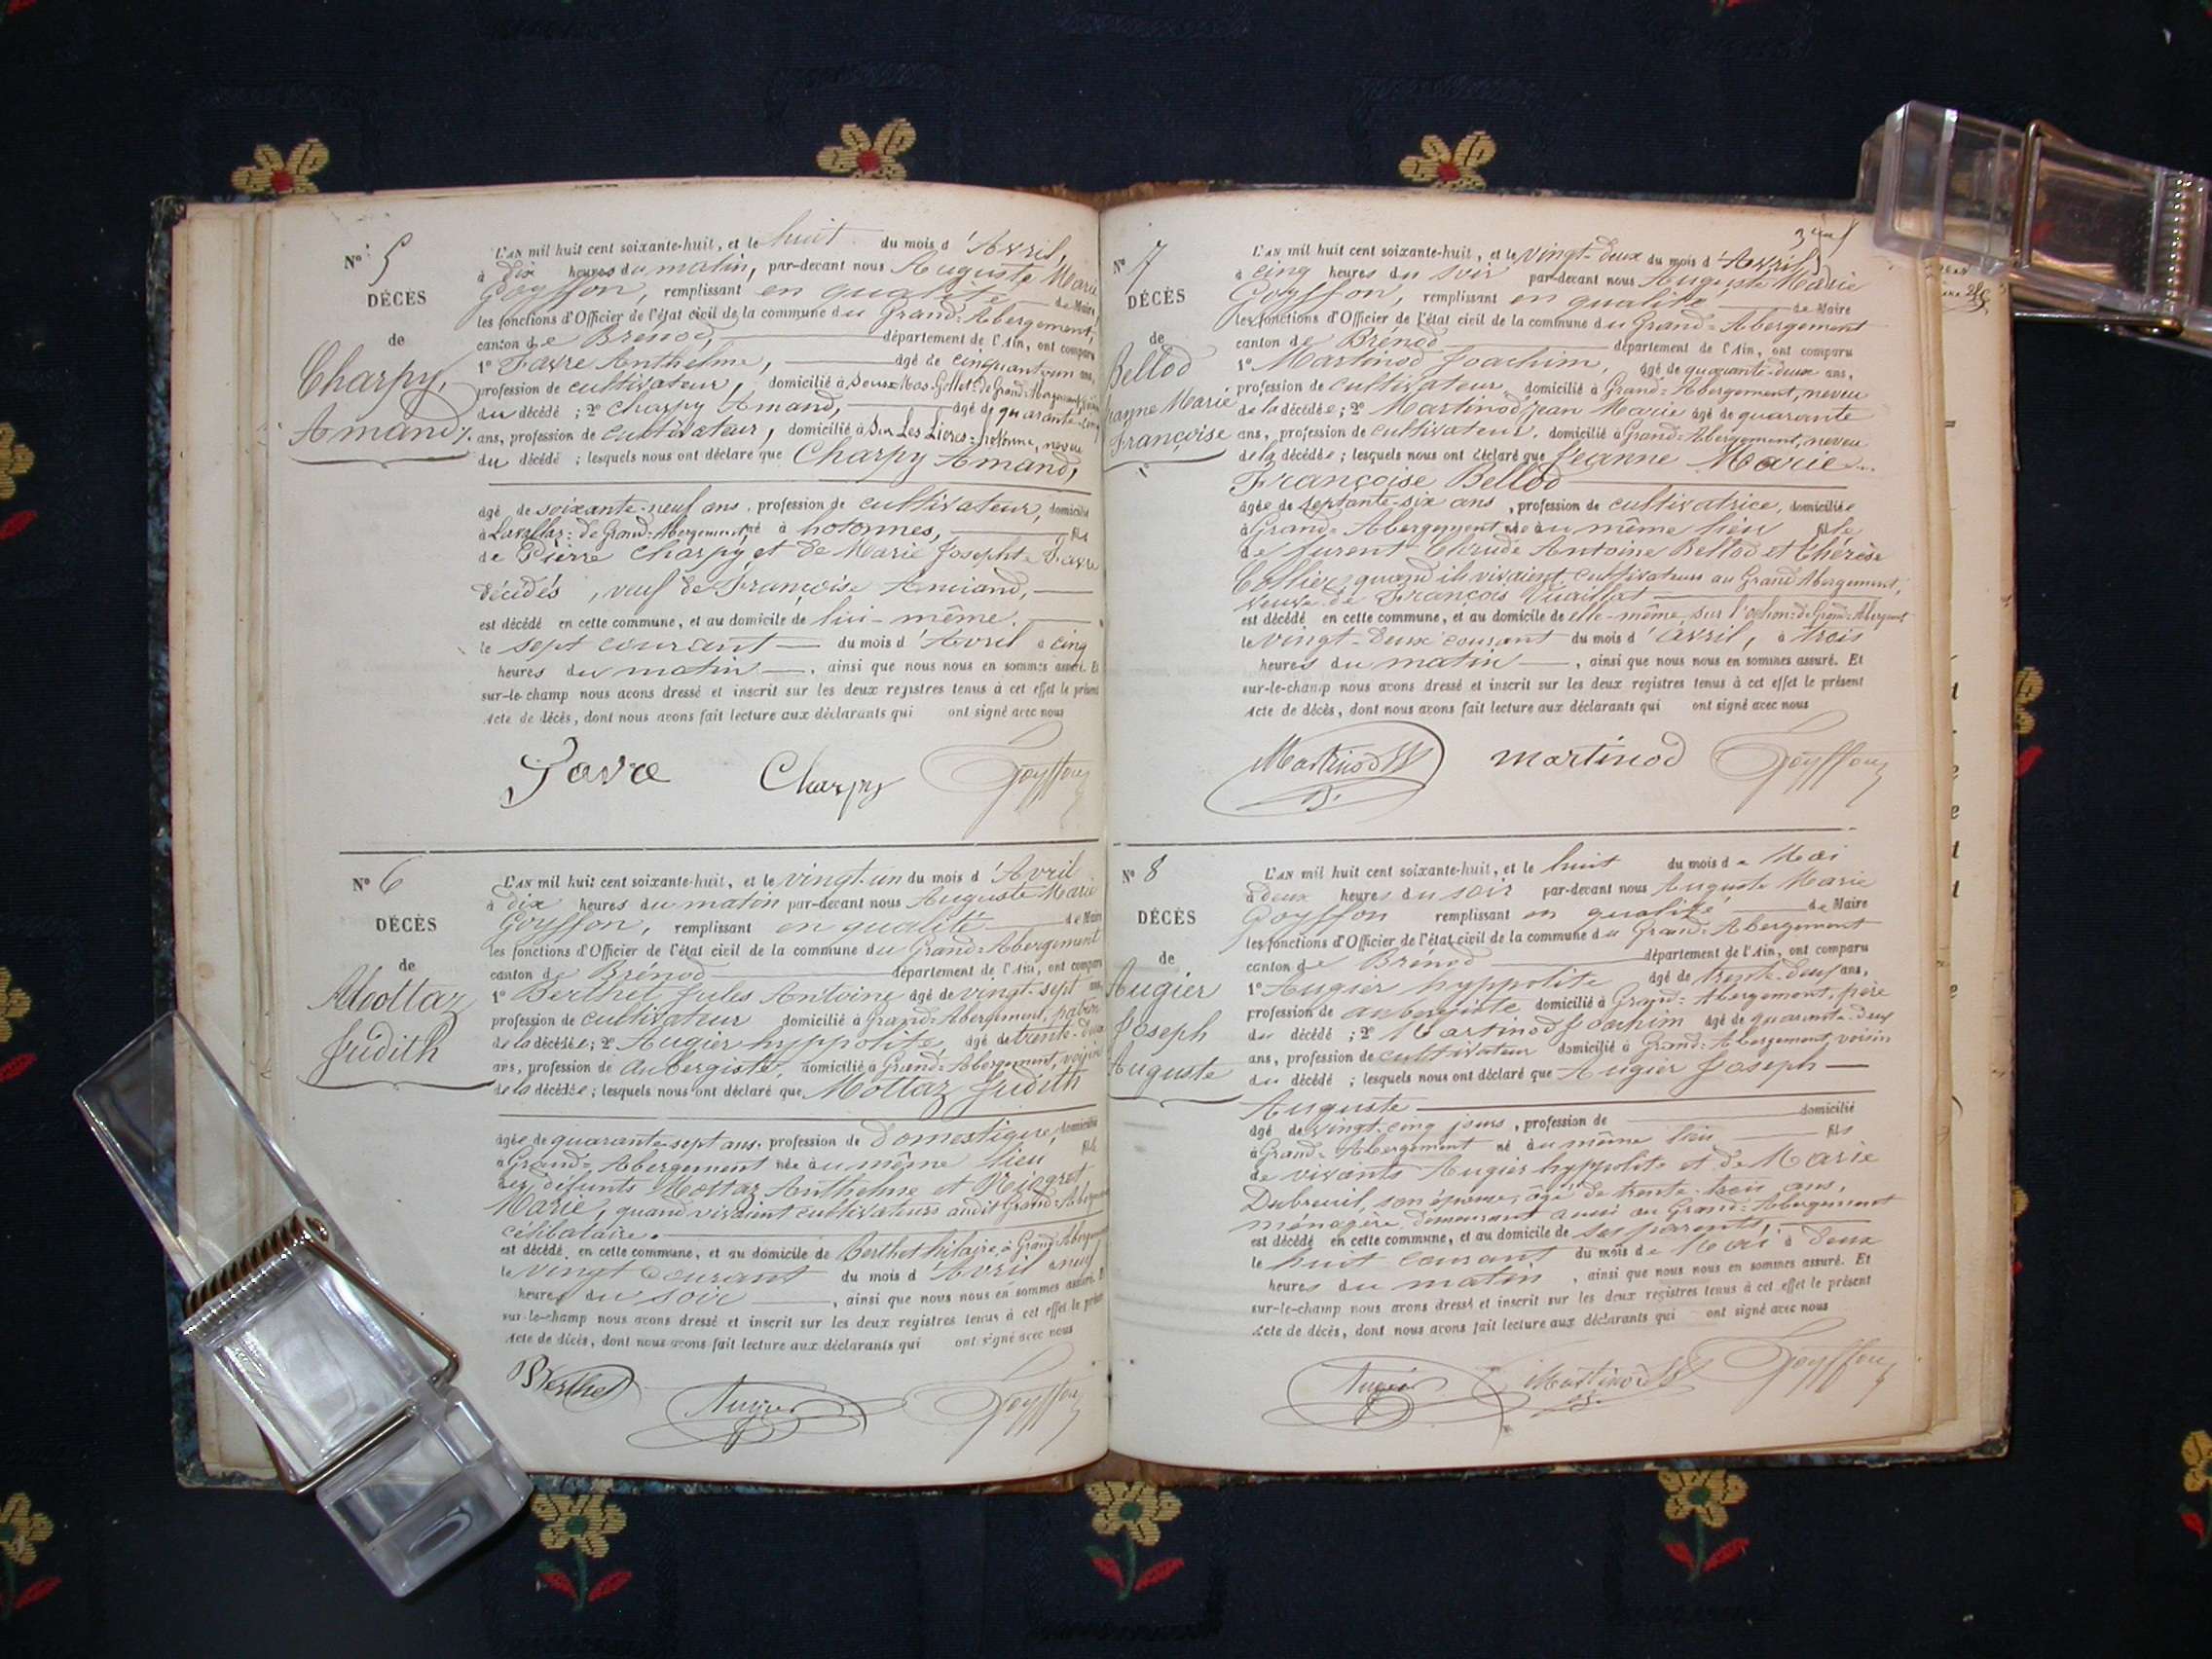 N° 5
DÉCÈS
de
Charpy,
Amand
L'AN mil huit cent soixante-huit, et le huit du mois d'Avril,
à dix heures du matin, par-devant nous Auguste Marie
Goyffon, remplissant en qualité de Maire
les fonctions d'Officier de l'état civil de la commune du Grand-Abergement,
canton de Brénod, département de l'Ain, ont comparu
1° Favre Anthelme, âgé de cinquant-un ans,
profession de cultivateur, domicilié à
du décédé ; 2° Charpy Amand, âgé de quarante
ans, profession de cultivateur, domicilié à Sur Les Lieres-hotonne, neveu
du décédé ; lesquels nous ont déclaré que Charpy Amand,
âgé de soixante-neuf ans, profession de cultivateur, domicilié
à de Grand-Abergement, né à hotonnes, fils
de Pierre Charpy et de Marie Josephte Favre
décédés, veuf de Françoise
est décédé en cette commune, et au domicile de lui-même.
le sept courant du mois d'Avril à cinq
heures du matin, ainsi que nous nous en sommes assuré. Et
sur-le-champ nous avons dressé et inscrit sur les deux registres tenus à cet effet le présent
Acte de décès, dont nous avons fait lecture aux déclarants qui ont signé avec nous
Favre Charpy Goyffon
N° 6
DÉCÈS
de
Mottaz
Judith
L'AN mil huit cent soixante-huit, et le vingt-un du mois d'Avril
à dix heures du matin par-devant nous Auguste Marie
Goyffon, remplissant en qualité de Maire
les fonctions d'Officier de l'état civil de la commune du Grand-Abergement
canton de Brénod département de l'Ain, ont comparu
1° Berthet Jules Antoine âgé de vingt-sept ans
profession de cultivateur domicilié à Grand-Abergement, patron
de la décédée ; 2° Augier hyppolite, âgé de trente-deux
ans, profession de Aubergiste, domicilié à Grand-Abergement, voisin
de la décédée ; lesquels nous ont déclaré que Mottaz Judith
âgée de quarante-sept ans, profession de Domestique, domiciliée
à Grand-Abergement née au même lieu fille
des défunts Mottaz Anthelme et
Marie, quand vivaient cultivateurs audit Grand-Abergement
célibataire.
est décédé en cette commune, et au domicile de Berthet hilaire, à Grand-Abergement
le vingt courant du mois d'Avril à neuf
heures du soir, ainsi que nous nous en sommes assuré. Et
sur-le-champ nous avons dressé et inscrit sur les deux registres tenus à cet effet le présent
Acte de décès, dont nous avons fait lecture aux déclarants qui ont signé avec nous
Berthet Augier Goyffon
N° 7
DÉCÈS
de
Bellod
Jeanne Marie
Françoise
L'AN mil huit cent soixante-huit, et le vingt-deux du mois d'Avril
à cinq heures du soir par-devant nous Auguste Marie
Goyffon, remplissant en qualité de Maire
les fonctions d'Officier de l'état civil de la commune du Grand-Abergement
canton de Brénod département de l'Ain, ont comparu
1° Martinod Joachim, âgé de quarante-deux ans,
profession de cultivateur, domicilié à Grand-Abergement, neveu
de la décédée ; 2° Martinod Jean Marie âgé de quarante
ans, profession de cultivateur, domicilié à Grand-Abergement, neveu
de la décédée ; lesquels nous ont déclaré que Jeanne Marie
Françoise Bellod
âgée de septante-six ans, profession de cultivatrice, domiciliée
à Grand-Abergement née au même lieu fille
de furent Claude Antoine Bellod et Thérèse
quand ils vivaient cultivateurs au Grand Abergement,
veuve de François Vuaillat
est décédé en cette commune, et au domicile de elle-même, sur de Grand-Abergement
le vingt-deux courant du mois d'avril, à trois
heures du matin, ainsi que nous nous en sommes assuré. Et
sur-le-champ nous avons dressé et inscrit sur les deux registres tenus à cet effet le présent
Acte de décès, dont nous avons fait lecture aux déclarants qui ont signé avec nous
Martinod martinod Goyffon
N° 8
DÉCÈS
de
Augier
Joseph
Auguste
L'AN mil huit cent soixante-huit, et le huit du mois de Mai
à deux heures du soir par-devant nous Auguste Marie
Goyffon remplissant en qualité de Maire
les fonctions d'Officier de l'état civil de la commune du Grand-Abergement
canton de Brénod département de l'Ain, ont comparu
1° Augier hyppolite âgé de trente-deux ans,
profession de aubergiste domicilié à Grand-Abergement, père
du décédé ; 2° Martinod Joachim âgé de quarante-deux
ans, profession de cultivateur domicilié à Grand-Abergement, voisin
du décédé ; lesquels nous ont déclaré que Augier Joseph
Auguste
âgé de vingt-cinq jours, profession de domicilié
à Grand-Abergement né au même lieu fils
de vivants Augier hyppolite et de Marie
Dubreuil, son épouse, âgé de trente-trois ans,
ménagère, demeurant aussi au Grand-Abergement
est décédé en cette commune, et au domicile de ses parrents,
le huit courant du mois de Mai à deux
heures du matin, ainsi que nous nous en sommes assuré. Et
sur-le-champ nous avons dressé et inscrit sur les deux registres tenus à cet effet le présent
Acte de décès, dont nous avons fait lecture aux déclarants qui ont signé avec nous
Augier Martinod Goyffon